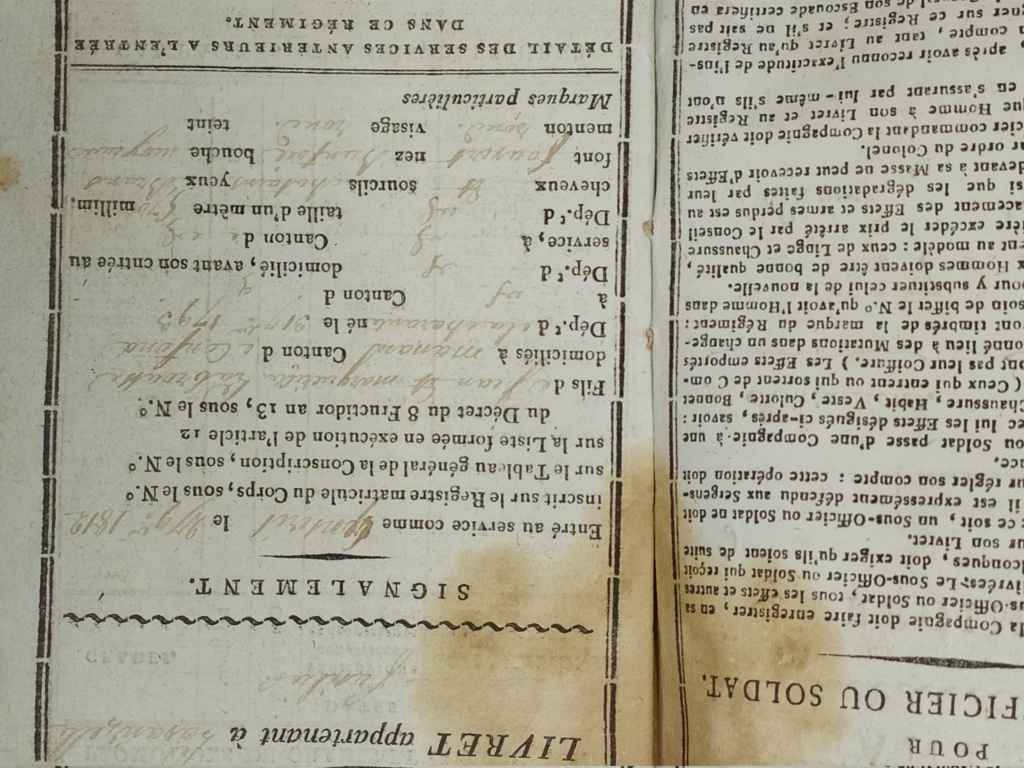 POUR
FICIER OU SOLDAT.
la Compagnie doit faire enregistrer, en sa
us-Officier ou Soldat, tous les effets et autres
livrées. Le Sous-Officier ou Soldat qui reçoit
lconques, doit exiger qu'ils soient de suite
ur son Livret.
ce soit, un Sous-Officier ou Soldat ne doit
il est expressément défendu aux Sergens-
ur régler son compte : cette opération doit
nce.
ou Soldat passe d'une Compagnie à une
ec lui les Effets désigués ci-après, savoir :
Chaussure, Habit, Veste, Culotte, Bonnet
( Ceux qui entrent ou qui sortent de Com-
ont pas leur Coiffure. ) Les Effets emportés
onné lieu à des Mutations dans un change-
ont timbrés de la marque du Régiment :
soin de biffer le N.º qu'avoit l'Homme dans
pour y substituer celui de la nouvelle.
x Hommes doivent être de bonne qualité,
ent au modèle : ceux de Linge et Chaussure
ière excéder le prix arrêté par le Conseil
lacement des Effets et armes perdus est au
si que les dégradations faites par leur
devant à sa Masse ne peut recevoir d'Effets
ar ordre du Colonel.
cier commandant la Compagnie doit vérifier
que Homme à son Livret et au Registre
en s'assurant par lui-même s'ils n'ont
, après avoir reconnu l'exactitude de l'ins-
n compte, tant au Livret qu'au Registre
ner sur ce Registre; et s'il ne sait pas
de son Escouade certifiera en
LIVRET appartenant à
SIGNALEMENT.
Entré au service comme le 1812
inscrit sur le Registre matricule du Corps, sous le N.º
sur le Tableau général de la Conscription, sous le N.º
sur la Liste formée en exécution de l'article 12
du Décret du 8 Fructidor an 13, sous le N.º
Fils d e Jean et marguerite
domiciliés à Canton d e
Dép.t d e la charante né le 1793
à Canton d
Dép.t d domicilié, avant son entrée au
service, à Canton d
Dép.t d taille d'un mètre millim.
cheveux et sourcils yeux
font couvert nez bouche moyenne
menton rond. visage rond. teint
Marques particulières
DÉTAIL DES SERVICES ANTÉRIEURS A L'ENTRÉE
DANS CE RÉGIMENT.